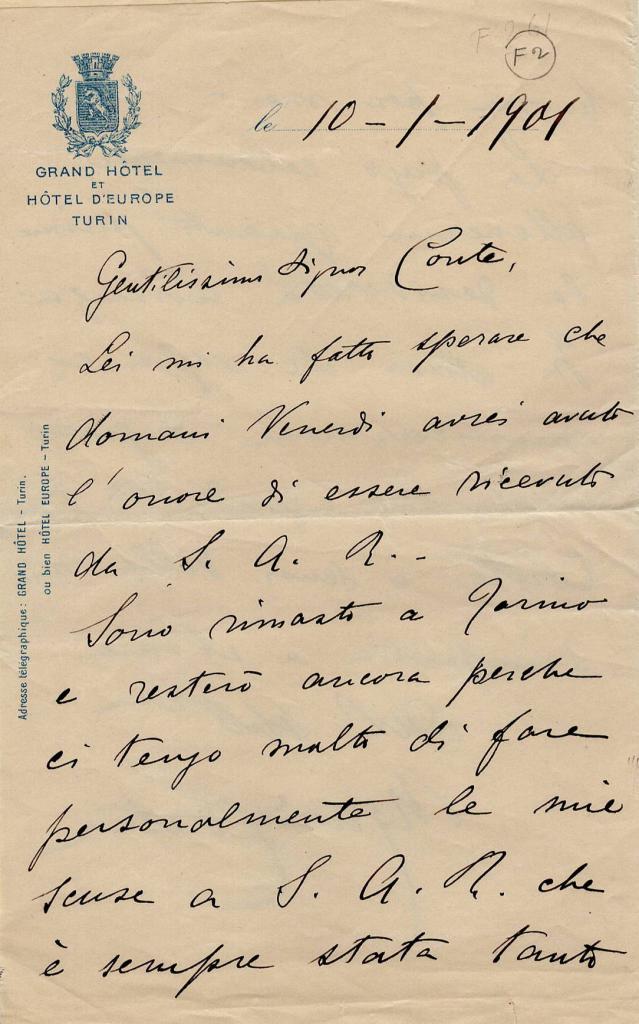 F 2
GRAND HÔTEL
ET
HÔTEL D'EUROPE
TURIN
le 10-1-1901
Gentilissimo Signor Conte,
Lei mi ha fatto sperare che
domani Venerdi avrei avuto
l'onore di essere ricevuto
da S. A. R. -
Sono rimasto a Torino
e resterò ancora perche
ci tengo molto di fare
personalmente le mie
scuse a S. A. R. che
è sempre stata tanto
Adresse télégraphique: GRAND HÔTEL - Turin.
ou bien HÔTEL EUROPE - Turin